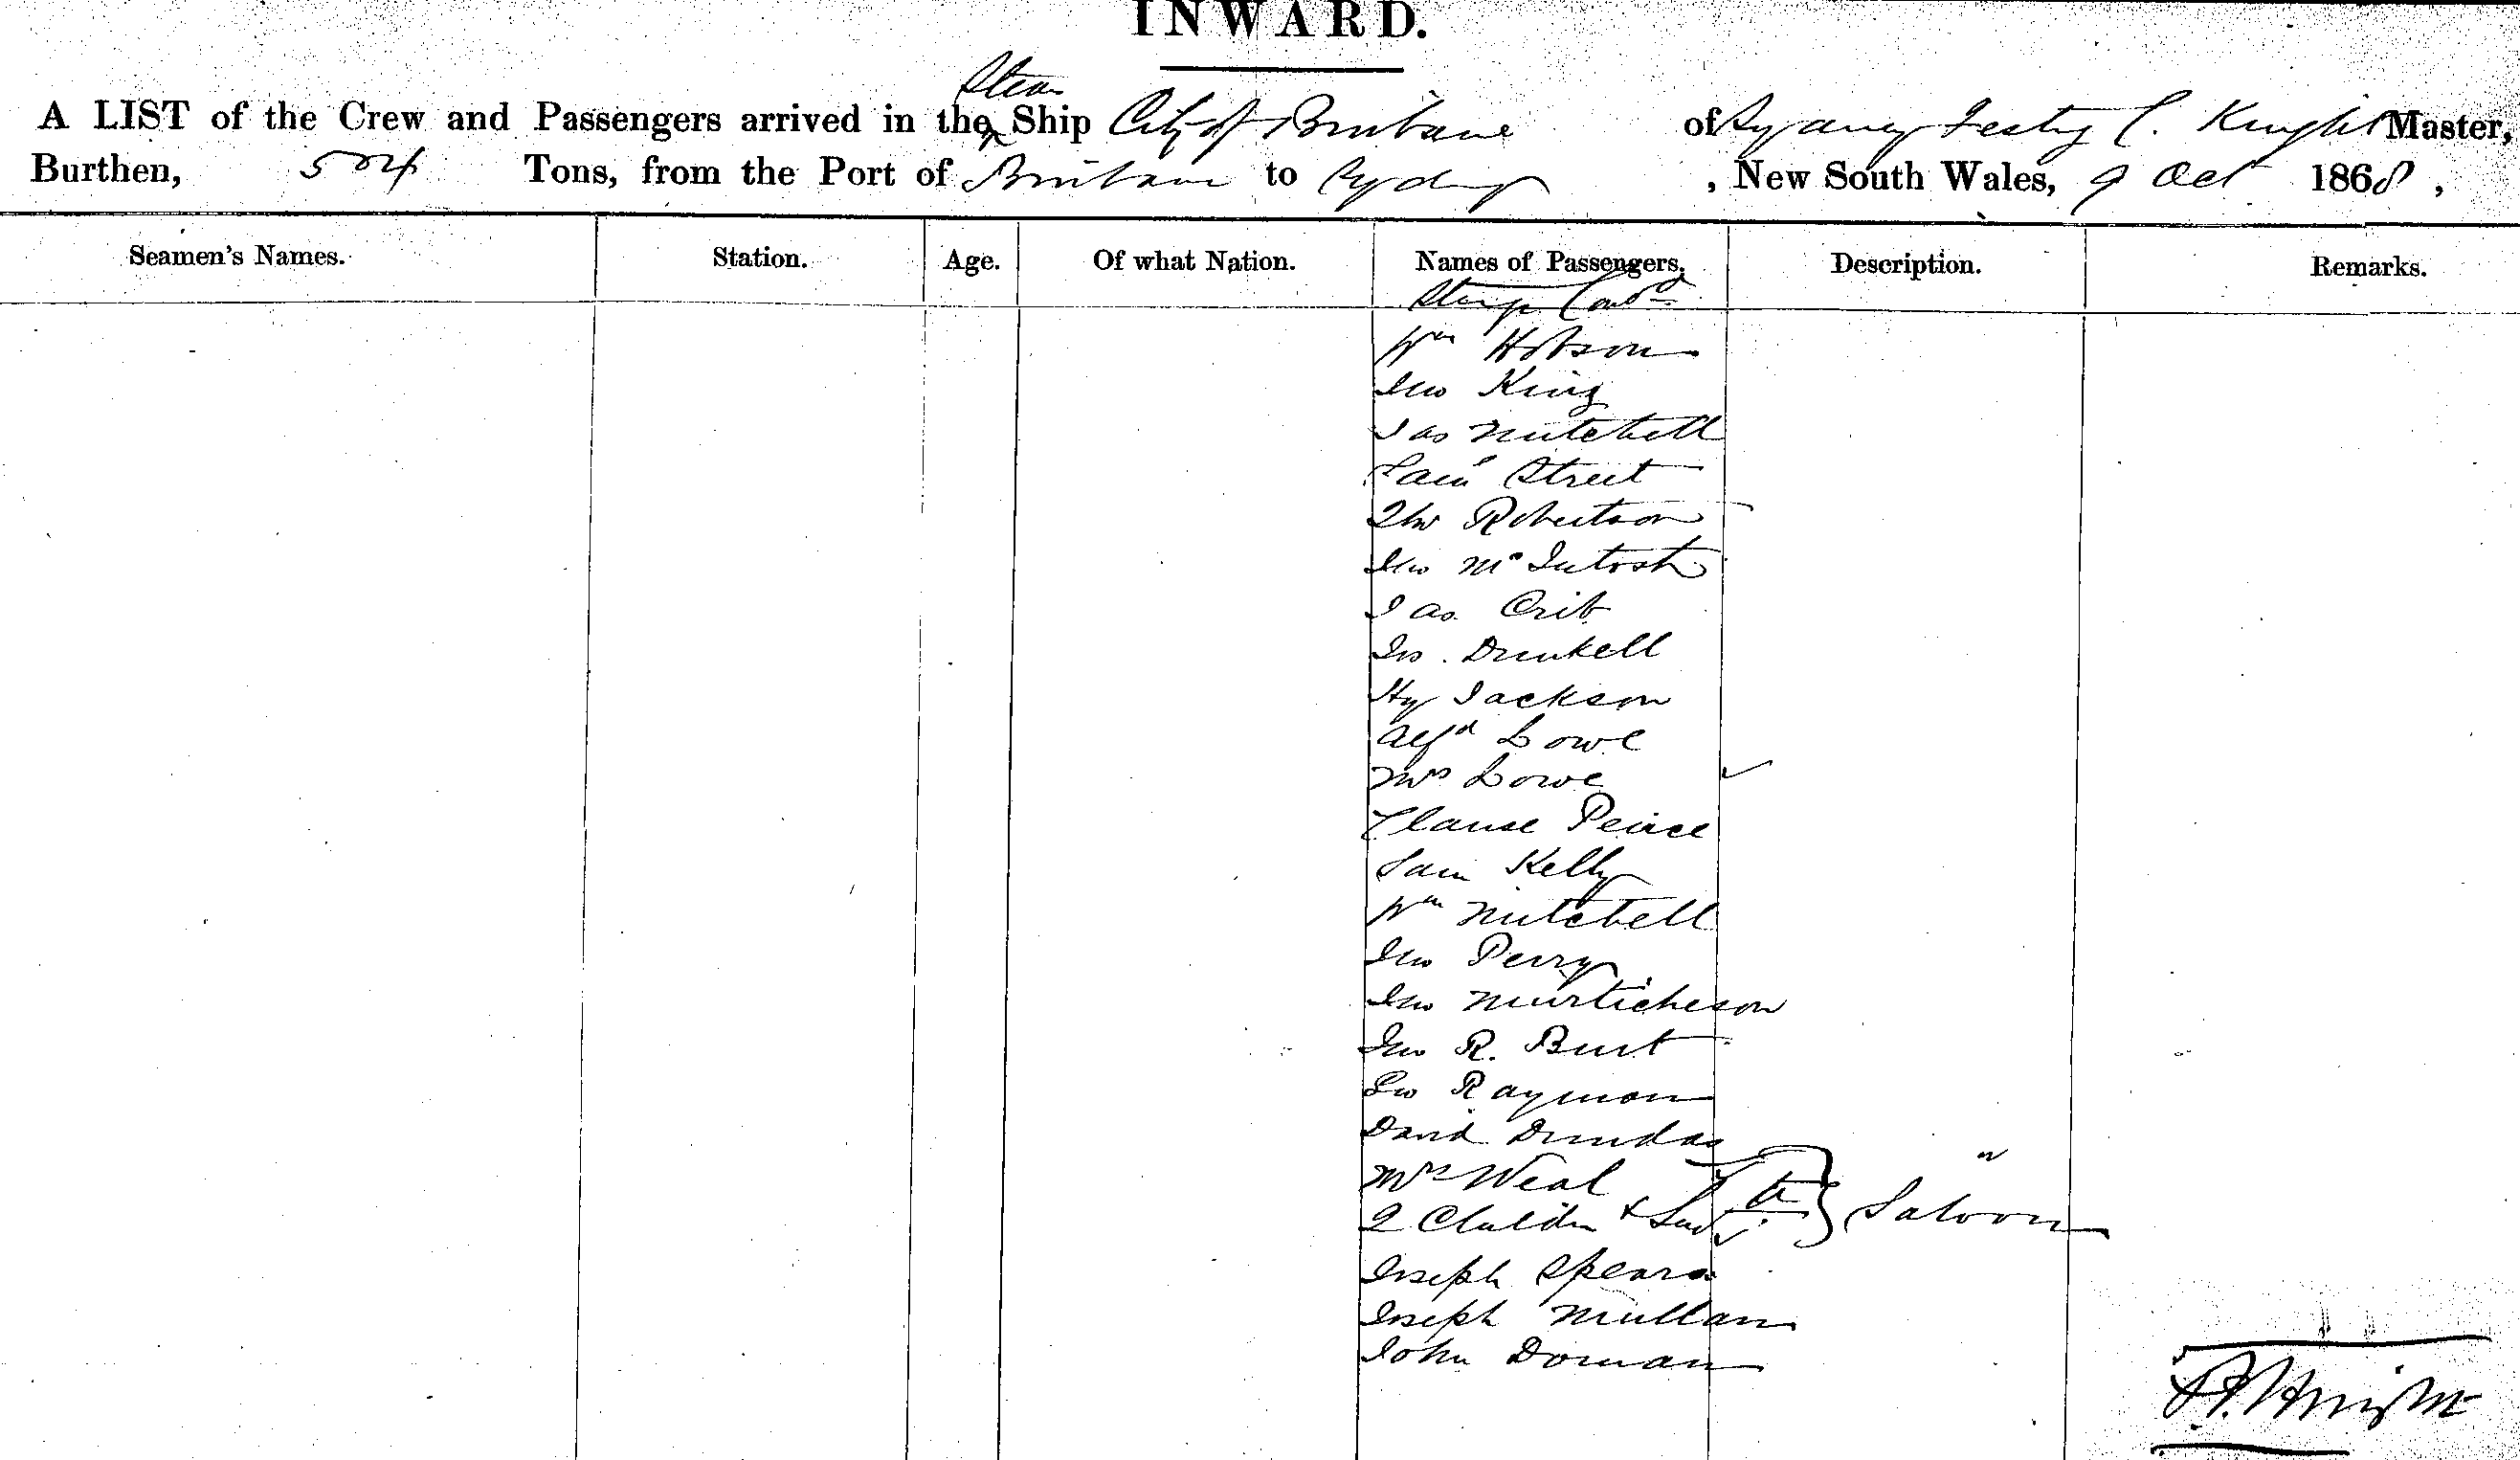 INWARD.
Steam
A LIST of the Crew and Passengers arrived in the Ship City of Brisbane of Sydney C. Knight Master,
Burthen, 504 Tons, from the Port of Brisbane to Sydney, New South Wales, 9 Oct 1868,
Seamen's Names. Station. Age. Of what Nation. Names of Passengers. Description. Remarks.
Wm Hobson
Jno King
Jas Mitchell
Saml Street
Robertson
Jno McIntosh
Jas Crib
Jos. Drinkell
Hy Jackson
Alfd Lowe
Mrs Lowe
Clause Peirce
Sam Kelly
Wm Mitchell
Jno Perry
Jno Murticheson
Jno R. Burt
Raymon
David Dundas
Mrs Weal
2 Children & Saloon
Joseph Spears
Joseph Mullan
John Doman
Knight